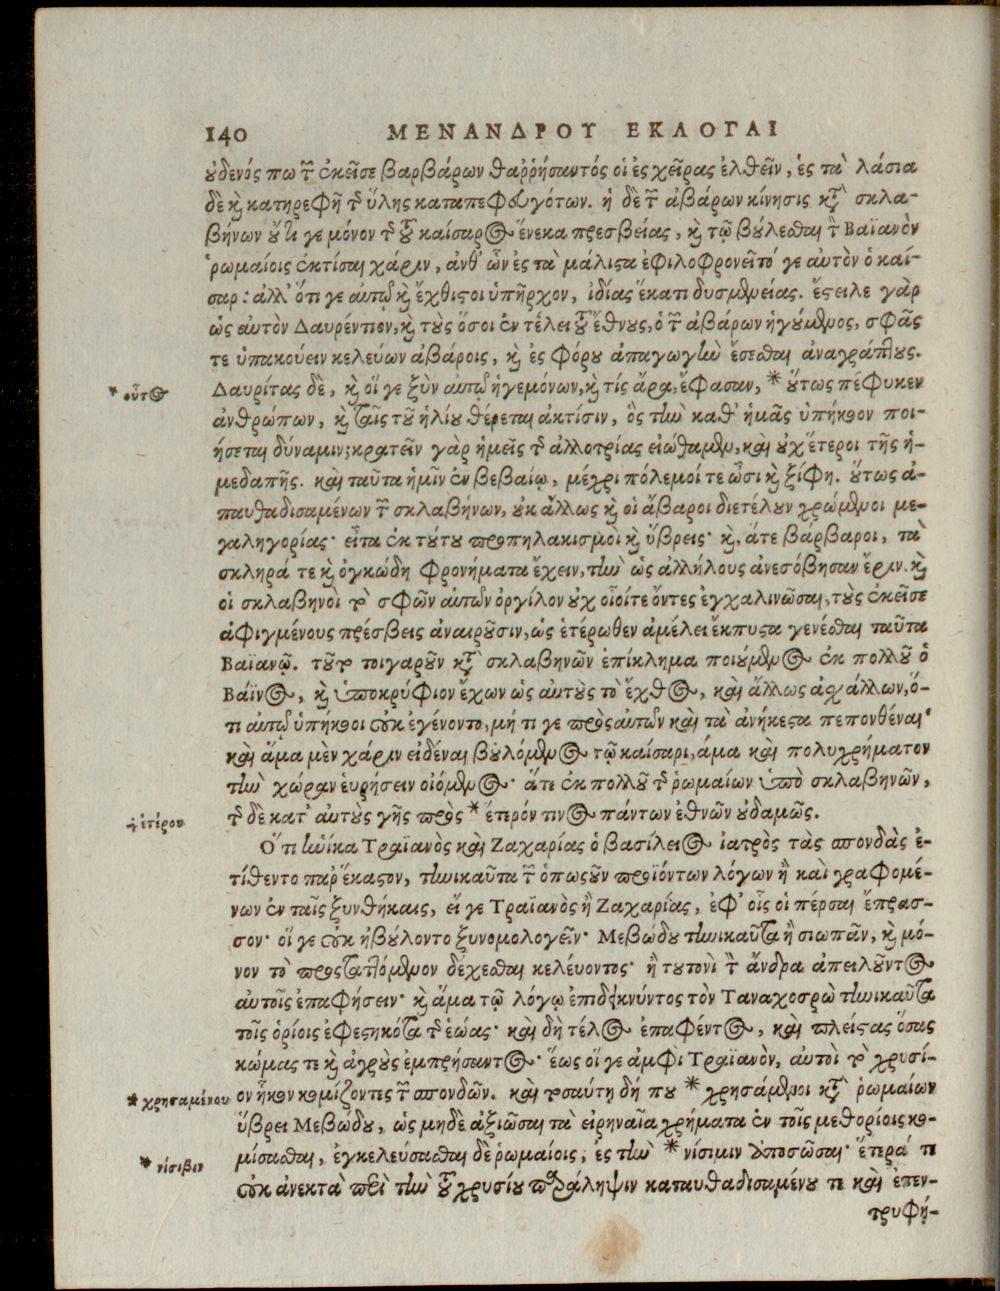 140 ΜΕΝΑΝΔΡΟΥ ΕΚΛΟΓΑΙ
οὐδενός πω τῶν ἐκεῖσε βαρβάρων θαῤῥήσαντός οἱ ἐς χεῖρας ἐλθεῖν, ἐς τὰ λάσια
δὲ καὶ κατηρεφῆ τῆς ὕλης καταπεφευγότων. ἡ δὲ τῶν ἀβάρων κίνησις κατὰ σκλα-
βήνων οὔτι γε μόνον τῆς τοῦ καίσαρος ἕνεκα πρεσβείας, καὶ τῷ βούλεσθαι τὸν Βαϊανὸν
ῥωμαίοις ἐκτίσαι χάριν, ἀνθ' ὧν ἐς τὰ μάλιστα ἐφιλοφρονεῖτό γε αὐτὸν ὁ καί-
σαρ: ἀλλ' ὅτι γε αὐτῷ καὶ ἔχθιστοι ὑπῆρχον, ἰδίας ἕκατι δυσμενείας. ἔστειλε γὰρ
ὡς αὐτὸν Δαυρέντιον, καὶ τοὺς ὅσοι ἐν τέλει τοῦ ἔθνους, ὁ τῶν ἀβάρων ἡγούμενος, σφᾶς
τε ὑπακούειν κελεύων ἀβάροις, καὶ ἐς φόρου ἀπαγωγὴν ἔσεσθαι ἀναγράπτους.
* οὗτος
Δαυρίτας δὲ, καὶ οἵ γε ξὺν αὐτῷ ἡγεμόνων, καὶ τίς ἄρα, ἔφασαν, * οὕτως πέφυκεν
ἀνθρώπων, καὶ ταῖς τοῦ ἡλίου θέρεται ἀκτίσιν, ὃς τὴν καθ' ἡμᾶς ὑπήκοον ποι-
ήσεται δύναμιν; κρατεῖν γὰρ ἡμεῖς τῆς ἀλλοτρίας εἰώθαμεν, καὶ οὐχ ἕτεροι τῆς ἡ-
μεδαπῆς. καὶ ταῦτα ἡμῖν ἐν βεβαίῳ, μέχρι πόλεμοί τε ὦσι καὶ ξίφη. οὕτως ἀ-
παυθαδισαμένων τῶν σκλαβήνων, οὐκ ἄλλως καὶ οἱ ἄβαροι διετέλουν χρώμενοι με-
γαληγορίας· εἶτα ἐκ τούτου προπηλακισμοὶ καὶ ὕβρεις· καὶ, ἅτε βάρβαροι, τὰ
σκληρά τε καὶ ὀγκώδη φρονήματα ἔχειν, τὴν ὡς ἀλλήλους ἀνεσόβησαν ἔριν. καὶ
οἱ σκλαβηνοὶ τὸ σφῶν αὐτῶν ὀργίλον οὐχ οἷοίτε ὄντες ἐγχαλινῶσαι, τοὺς ἐκεῖσε
ἀφιγμένους πρέσβεις ἀναιροῦσιν, ὡς ἑτέρωθεν ἀμέλει ἔκπυστα γενέσθαι ταῦτα
Βαϊανῷ. τοῦτο τοιγαροῦν κατὰ σκλαβηνῶν ἐπίκλημα ποιούμενος ἐκ πολλοῦ ὁ
Βάϊνος, καὶ ὑποκρύφιον ἔχων ὡς αὐτοὺς τὸ ἔχθος, καὶ ἄλλως ἀχάλλων, ὅ-
τι αὐτῷ ὑπήκοοι οὐκ ἐγένοντο, μή τι γε πρὸς αὐτῶν καὶ τὰ ἀνήκεστα πεπονθέναι·
καὶ ἅμα μὲν χάριν εἰδέναι βουλόμενος τῷ καίσαρι, ἅμα καὶ πολυχρήματον
τὴν χώραν εὑρήσειν οἰόμενος· ἅτε ἐκ πολλοῦ τῆς ῥωμαίων ὑπὸ σκλαβηνῶν,
ἡ ἑτέρου
τῆς δὲ κατ' αὐτοὺς γῆς πρὸς * ἕτερόν τινος πάντων ἐθνῶν οὐδαμῶς.
Ὅτι ἡνίκα Τραϊανὸς καὶ Ζαχαρίας ὁ βασίλειος ἰατρὸς τὰς σπονδὰς ἐ-
τίθεντο παρ' ἕκαστον, τηνικαῦτα τῶν ὁπωσοῦν προϊόντων λόγων ἢ καὶ γραφομέ-
νων ἐν ταῖς ξυνθήκαις, εἴ γε Τραϊανὸς ἢ Ζαχαρίας, ἐφ' οἷς οἱ πέρσαι ἔπρασ-
σον· οἵ γε οὐκ ἠβούλοντο ξυνομολογεῖν· Μεβώδου τηνικαῦτα ἢ σιωπᾶν, καὶ μό-
νον τὸ προσταττόμενον δέχεσθαι κελεύοντος· ἢ τουτονὶ τὸν ἄνδρα ἀπειλοῦντος
αὐτοῖς ἐπαφήσειν· καὶ ἅμα τῷ λόγῳ ἐπιδεικνύντος τὸν Ταναχοσρὼ τηνικαῦτα
τοῖς ὁρίοις ἐφεστηκότα τῆς ἑώας· καὶ δὴ τέλος ἐπαφέντος, καὶ πλείστας ὅσας
κώμας τε καὶ ἀγροὺς ἐμπρήσαντος· ἕως οἵ γε ἀμφὶ Τραϊανὸν, αὐτοὶ τὸ χρυσί-
* χρησαμένου
ον ἧκον κομίζοντες τῶν σπονδῶν. καὶ τοσαύτη δή που * χρησάμενοι κατὰ ῥωμαίων
ὕβρει Μεβώδου, ὡς μηδὲ ἀξιῶσαι τὰ εἰρηναῖα χρήματα ἐν τοῖς μεθορίοις κο-
* νίσιβιν
μίσασθαι, ἐγκελεύσασθαι δὲ ῥωμαίοις, ἐς τὴν * νίσιμιν ἀποσῶσαι· ἕτερά τι
οὐκ ἀνεκτὰ περὶ τὴν τοῦ χρυσίου παράληψιν καταυθαδισαμένου τι καὶ ἐπεν-
τρυφή-